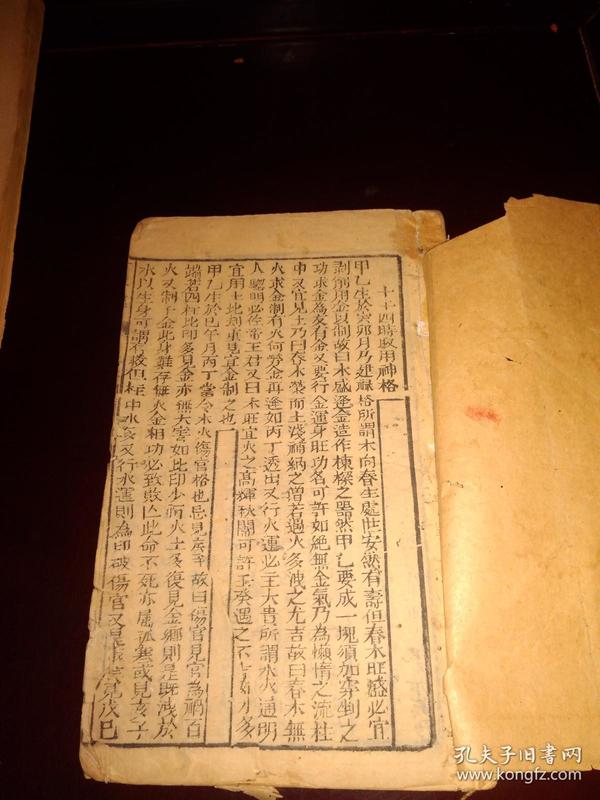 十干四時取用神格
甲乙生於寅卯月乃建祿格所謂木向春生處世安然有壽但春木旺盛必宜
剥削用金以制故曰木盛逢金造作棟樑之器然甲乙要成一塊須加穿剉之
功求金為友有金又要行金運身旺功名可許如絕無金氣乃為懶惰之流柱
中又宜見土乃曰春木榮而土淺補納之僧若遇火多洩之尤吉故曰春木無
火求金制有火何勞金再逢如丙丁透出又行火運必主大貴所謂木火通明
人聰明必佐帝王君又曰木旺宜火之高輝秋闈可許壬癸遇之不吉水多
宜用土此則重見宜金制之也
甲乙生於巳午月丙丁當令木火傷官格也忌見庚辛故曰傷官見官為禍百
端若四柱比印多見金亦無大害如比印少而火土多復見金鄉則是既洩於
火又制于金此身難存無火金相功必致敗亡此命不死亦屬孤寒或見亥子
水以生身可謂有救但柱中水多又行水運則為印破傷官又見戊己
孔夫子旧書网
www.kongfz.com